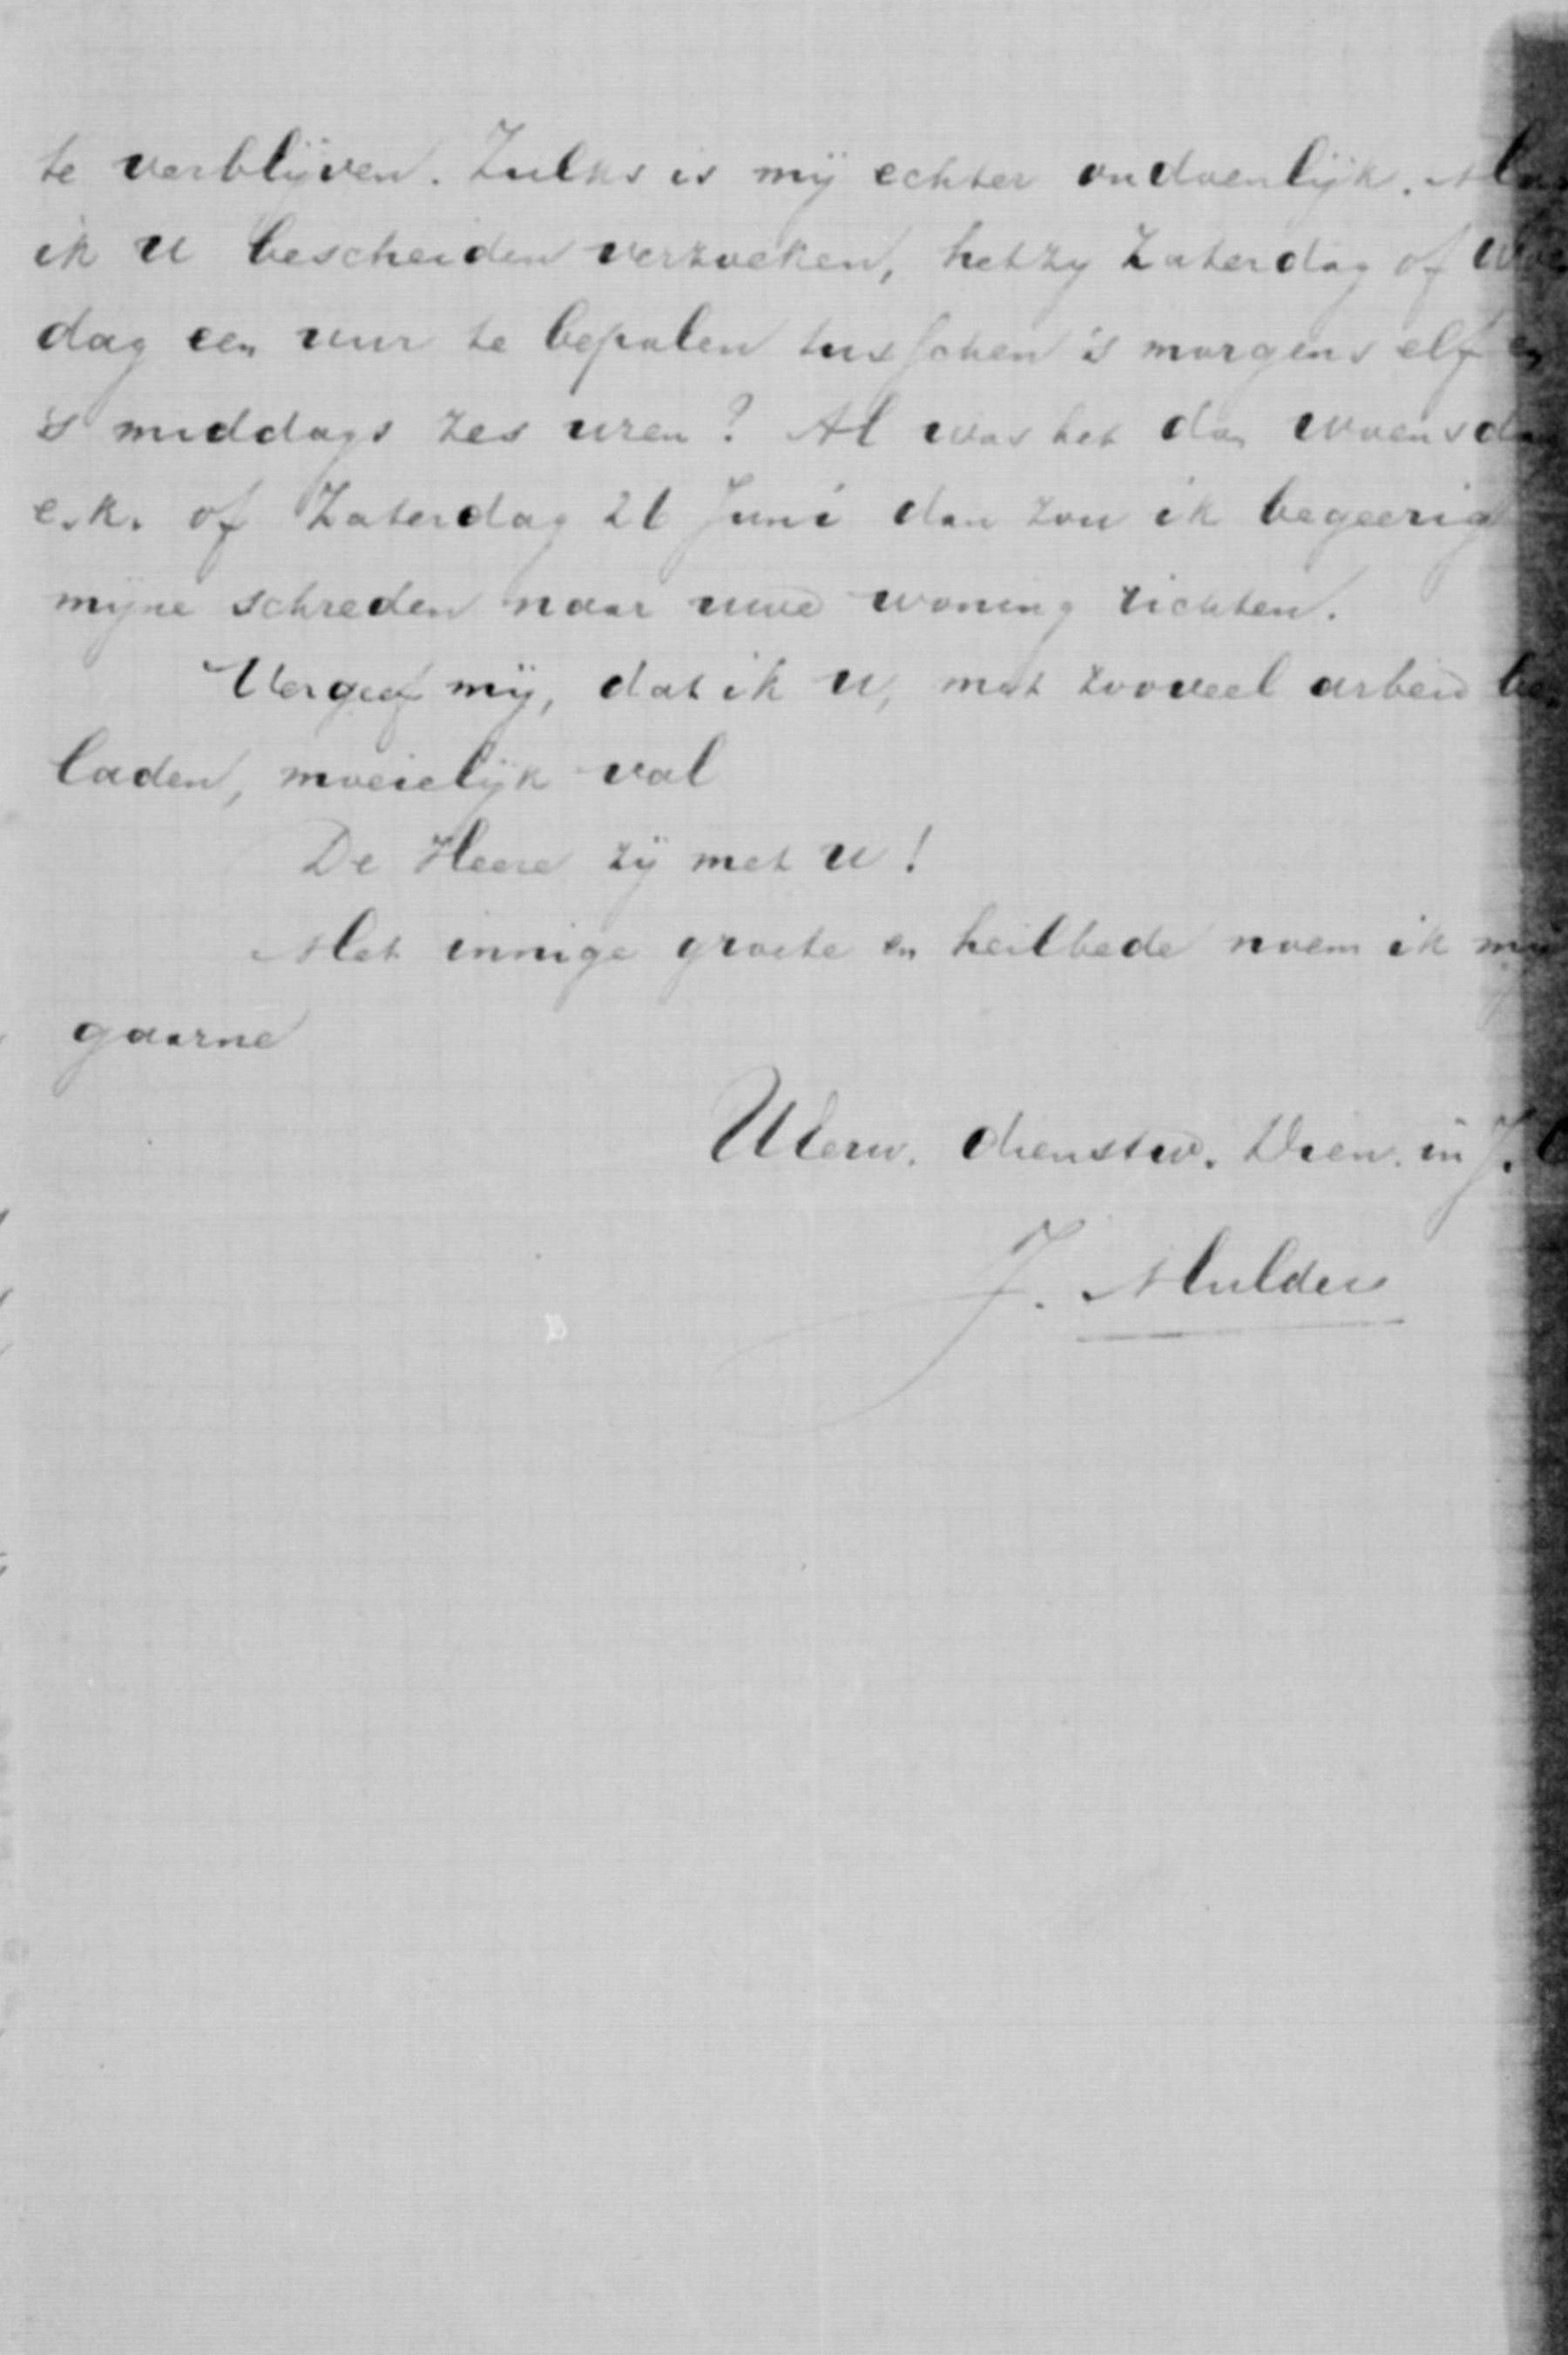 te verblijven. Zulks is mij echter ondoenlijk. Mag
ik U bescheiden verzoeken, hetzy Zaterdag of Woens
dag een uur te bepalen tusschen 's morgens elf en
's middags zes uren? Al was het dan woensdag
e.k. of Zaterdag 21 Juni dan zou ik begeerig
mijne schreden naar uwe woning richten.
Vergeef mij, dat ik U, met zooveel arbeid be-
laden, moeielijk val
De Heere zij met U!
Met innige groete en heilbede noem ik mij
gaarne
UEerw. dienstw. Dien. in J. C
J. Mulder